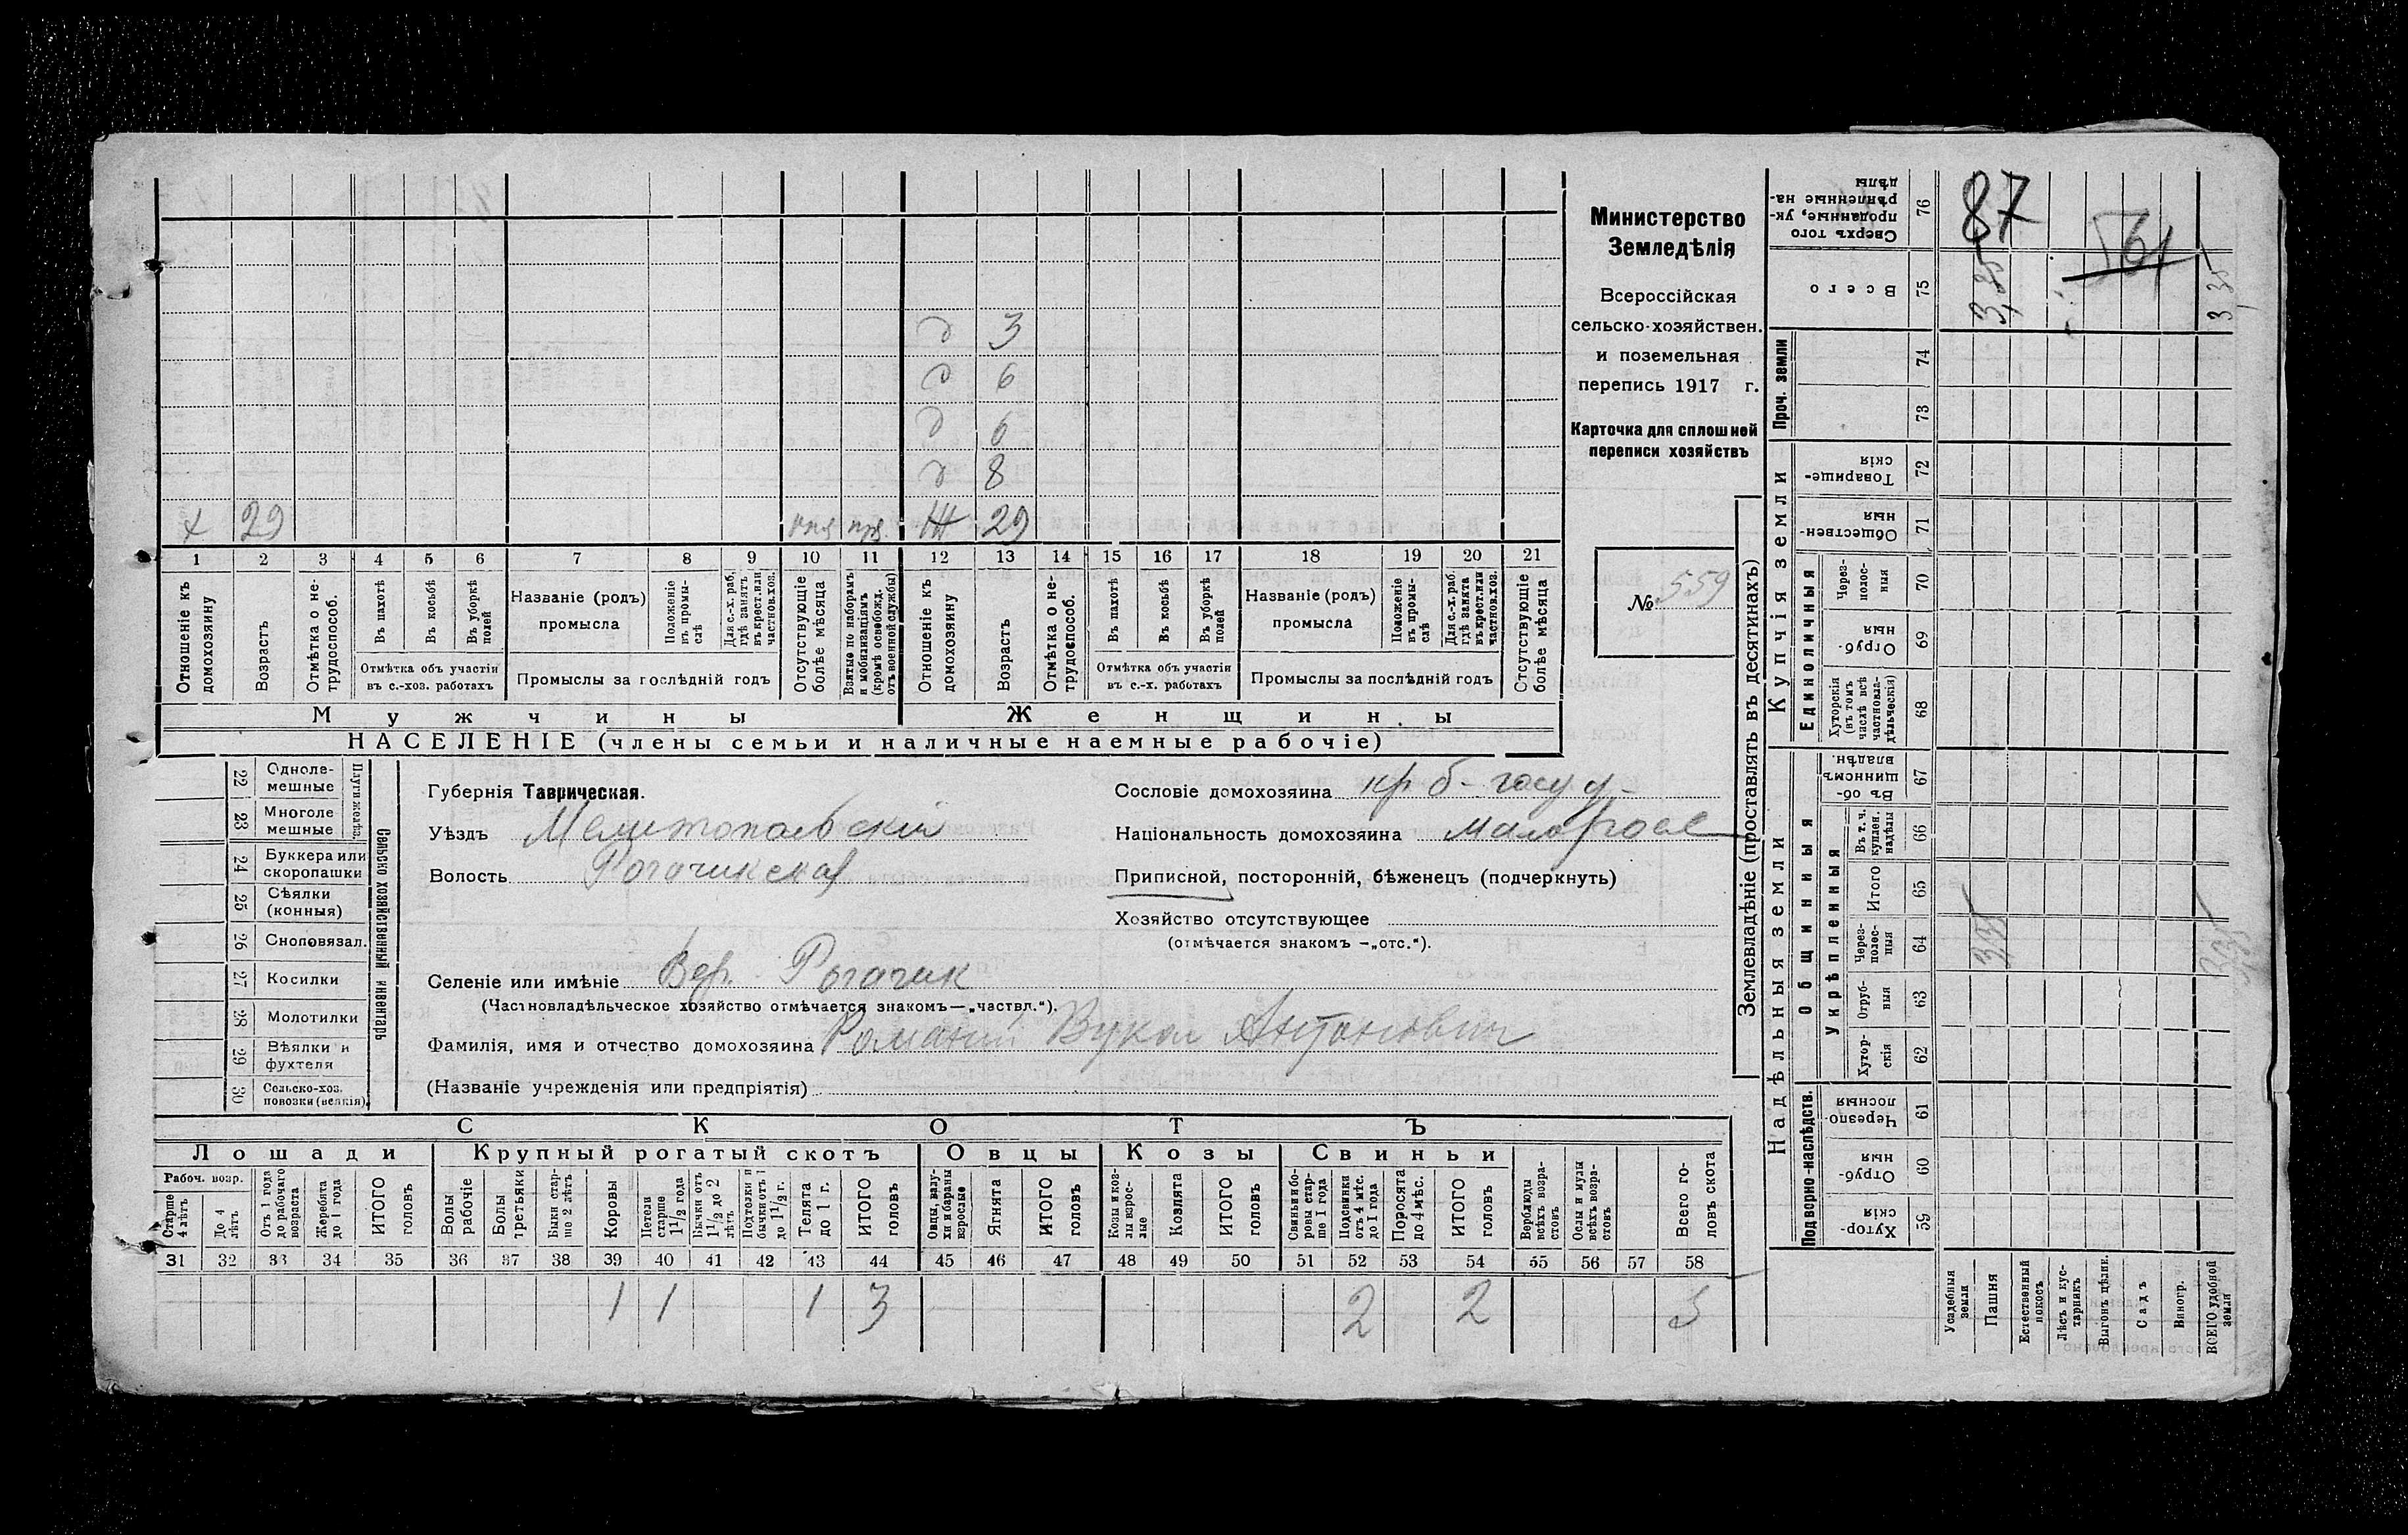 Министерство
Земледѣлія
Всероссійская
сельско-хозяйствен.
и поземельная
перепись 1917 г.
Карточка для сплошной
переписи хозяйствъ
№ 559
д 3
д 6
д 6
д 8
х 29 Ж 29
1 2 3 4 5 6 7 8 9 10 11 12 13 14 15 16 17 18 19 20 21
Отношеніе къ домохозяину
Возрастъ
Отмѣтка о не-трудоспособ.
Въ пахотѣ
Въ косьбѣ
Въ уборкѣ полей
Отмѣтка объ участіи въ с.-хоз. работахъ
Названіе (родъ) промысла
Положеніе въ промы-слѣ
Для с.-х. раб. гдѣ занятъ въ крест. или частнов. хоз.
Промыслы за послѣдній годъ
Отсутствующіе болѣе мѣсяца
Взятые по наборамъ и мобилизаціямъ (кромѣ освобожд. отъ военной службы)
Отношеніе къ домохозяину
Возрастъ
Отмѣтка о не-трудоспособ.
Въ пахотѣ
Въ косьбѣ
Въ уборкѣ полей
Отмѣтка объ участіи въ с.-х. работахъ
Названіе (родъ) промысла
Положеніе въ промы-слѣ
Для с.-х. раб. гдѣ занята въ крест. или частнов. хоз.
Промыслы за послѣдній годъ
Отсутствующіе болѣе мѣсяца
Мужчины Женщины
НАСЕЛЕНІЕ (члены семьи и наличные наемные рабочіе)
22 Одноле-мешные
23 Многоле мешные
Плуги желѣз.
24 Буккера или скоропашки
25 Сѣялки (конныя)
26 Сноповязал.
27 Косилки
28 Молотилки
29 Вѣялки и фухтеля
30 Сельско-хоз. повозки (всякія)
Сельско хозяйственный инвентарь
Губернія Таврическая.
Уѣздъ Мелитопольскій
Волость Рогачикская
Селеніе или имѣніе Вер. Рогачик
(Частновладѣльческое хозяйство отмѣчается знакомъ—„частвл.“).
Фамилія, имя и отчество домохозяина Романий Вукол Антонович
(Названіе учрежденія или предпріятія)
Сословіе домохозяина кр б-госуд-
Національность домохозяина Малоросс
Приписной, посторонній, бѣженецъ (подчеркнуть)
Хозяйство отсутствующее
(отмѣчается знакомъ —„отс.“).
СКОТЪ
Лошади Крупный рогатый скотъ Овцы Козы Свиньи
Рабоч. возр.
Старше 4 лѣтъ
До 4 лѣтъ
Отъ 1 года до рабочаго возраста
Жеребята до 1 года
ИТОГО головъ
Волы рабочіе
Волы третьяки
Быки стар-ше 2 лѣтъ
Коровы
Нетели старше 1 1/2 года
Бычки отъ 1 1/2 до 2 лѣтъ
Подтелки и бычки отъ 1 до 1 1/2 г.
Телята до 1 г.
ИТОГО головъ
Овцы, валу-хи и бараны взрослые
Ягнята
ИТОГО головъ
Козы и коз-лы взрос-лые
Козлята
ИТОГО головъ
Свиньи и бо-ровы стар-ше 1 года
Подсвинки отъ 4 мѣс. до 1 года
Поросята до 4 мѣс.
ИТОГО головъ
Верблюды всѣхъ возра-стовъ
Ослы и мулы всѣхъ возра-стовъ
Всего го-ловъ скота
31 32 33 34 35 36 37 38 39 40 41 42 43 44 45 46 47 48 49 50 51 52 53 54 55 56 57 58
1 1 1 3 2 2 5
Землевладѣніе (проставлять въ десятинахъ)
Купчія земли
Надѣльныя земли
Сверхъ того проданные, ук-рѣпленные на-дѣлы 76
87
Всего 75
Проч. земли
74
73
Товарище-скія 72
Обществен-ныя 71
Единоличныя
Через-полос-ныя 70
Отруб-ныя 69
Хуторскія (въ томъ числѣ всѣ частновла-дѣльческія) 68
Общинныя
Въ об-щинномъ владѣн. 67
Укрѣпленныя
Въ т. ч. куплен. надѣлы 66
Итого 65
Через-полос-ныя 64
Отруб-ныя 63
Хутор-скія 62
Подворно-наслѣдств.
Черезпо лосныя 61
Отруб-ныя 60
Хутор-скія 59
Усадебная земля
Пашня
Естественный покосъ
Лѣсъ и кус-тарникъ
Выгонъ цѣлин.
Садъ
Виногр.
ВСЕГО удобной земли